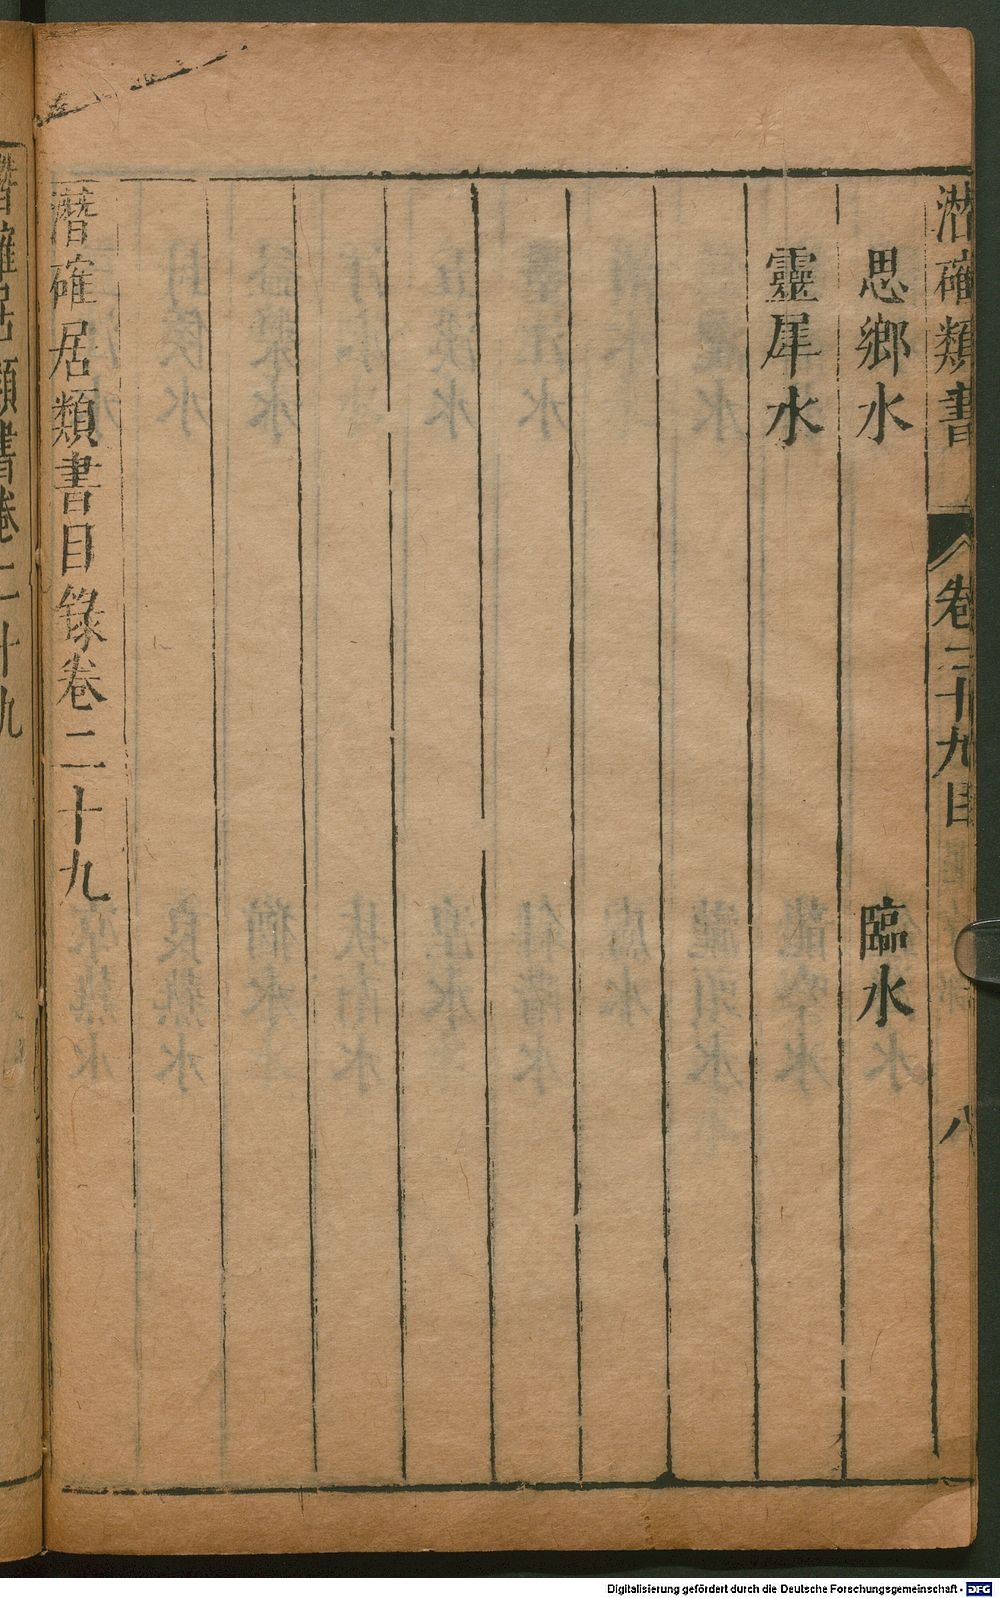 潛確類書
卷二十九目
八
思鄉水
臨水
靈犀水
潛確居類書目錄卷二十九
潛確居類書卷二十九
Digitalisierung gefördert durch die Deutsche Forschungsgemeinschaft - DFG